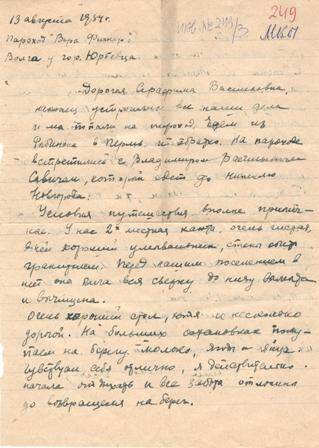 13 августа 1934 г.
Пароход "Вера Фигнер"
Волга у гор. Юрьевца
Инв. № 249/3
249
МКЫ
Дорогая Серафима Васильевна,
наконец устроились все наши дела
и мы попали на пароход. Едем из
Рыбинска в Пермь и обратно. На пароходе
встретились с Владимиром Васильевичем
Савичем, который едет до Нижнего
Новгорода.
Условия путешествия вполне прилич-
ные. У нас 2х местная каюта, очень чистая,
в ней хороший умывальник, стены
перед нашим поселением в
ней она была вся сверху до низу
и вычищена.
Очень хороший стол, хотя и несколько
дорогой. На больших остановках поку-
паем на берегу молоко, ягоды и яйца.
Чувствуем себя отлично, я действительно
начала отдыхать и все заботы отложила
до возвращения на берег.